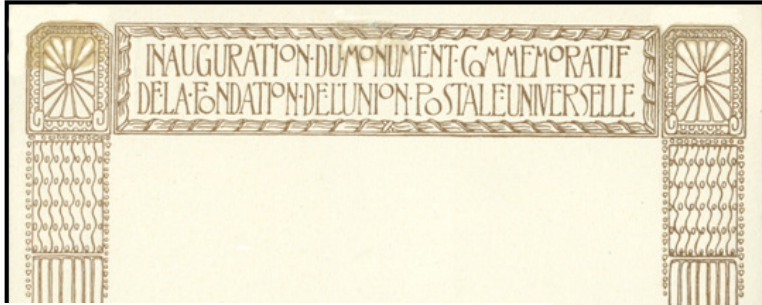 INAUGURATION·DU·MONUMENT·COMMEMORATIF
DE·LA·FONDATION·DE·L'UNION·POSTALE·UNIVERSELLE